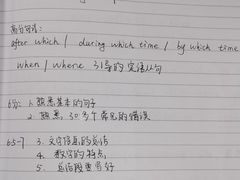 高分句式:
after which / during which time / by which time
when / where 引导的定语从句
6分: 1. 熟悉基本的句子
2. 熟悉, 30多个常见的错误
6.5-7 3. 文字信息的总结
4. 数字的特点
5. 总结段要写好